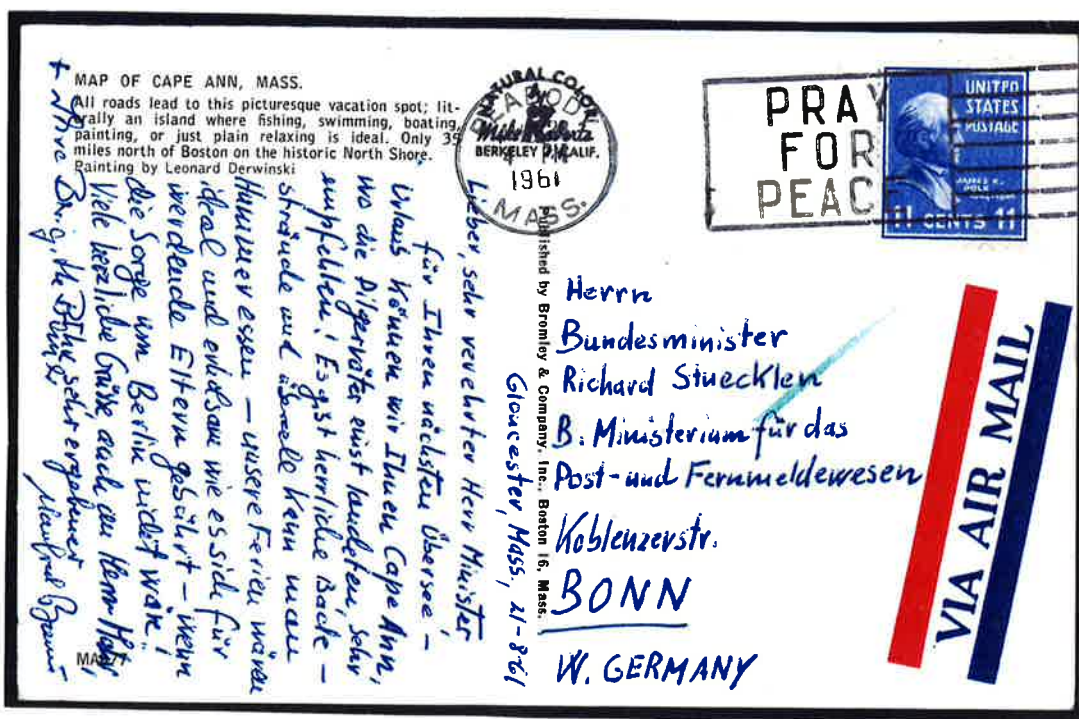 MAP OF CAPE ANN, MASS.
All roads lead to this picturesque vacation spot; lit-
erally an island where fishing, swimming, boating,
painting, or just plain relaxing is ideal. Only 35
miles north of Boston on the historic North Shore.
Painting by Leonard Derwinski
NATURAL COLOR
Mike Roberts
BERKELEY 2, CALIF.
PM
1961
MASS.
PRAY
FOR
PEACE
UNITED
STATES
POSTAGE
JAMES K.
POLK
11 CENTS 11
Published by Bromley & Company, Inc., Boston 16, Mass.
Gloucester, Mass., 21-8-61
Lieber, sehr verehrter Herr Minister
für Ihren nächsten Übersee-
Urlaub können wir Ihnen Cape Ann,
wo die Pilgerväter einst landeten, sehr
empfehlen! Es gibt herrliche Bade-
strände und überall kann man
Hummer essen — unsere Ferien wären
ideal und erholsam wie es sich für
werdende Eltern gebührt — wenn
die Sorge um Berlin nicht wäre!
Viele herzliche Grüße, auch an Herrn
Ihr sehr ergebener
Herrn
Bundesminister
Richard Stuecklen
B. Ministerium für das
Post- und Fernmeldewesen
Koblenzerstr.
BONN
W. GERMANY
VIA AIR MAIL